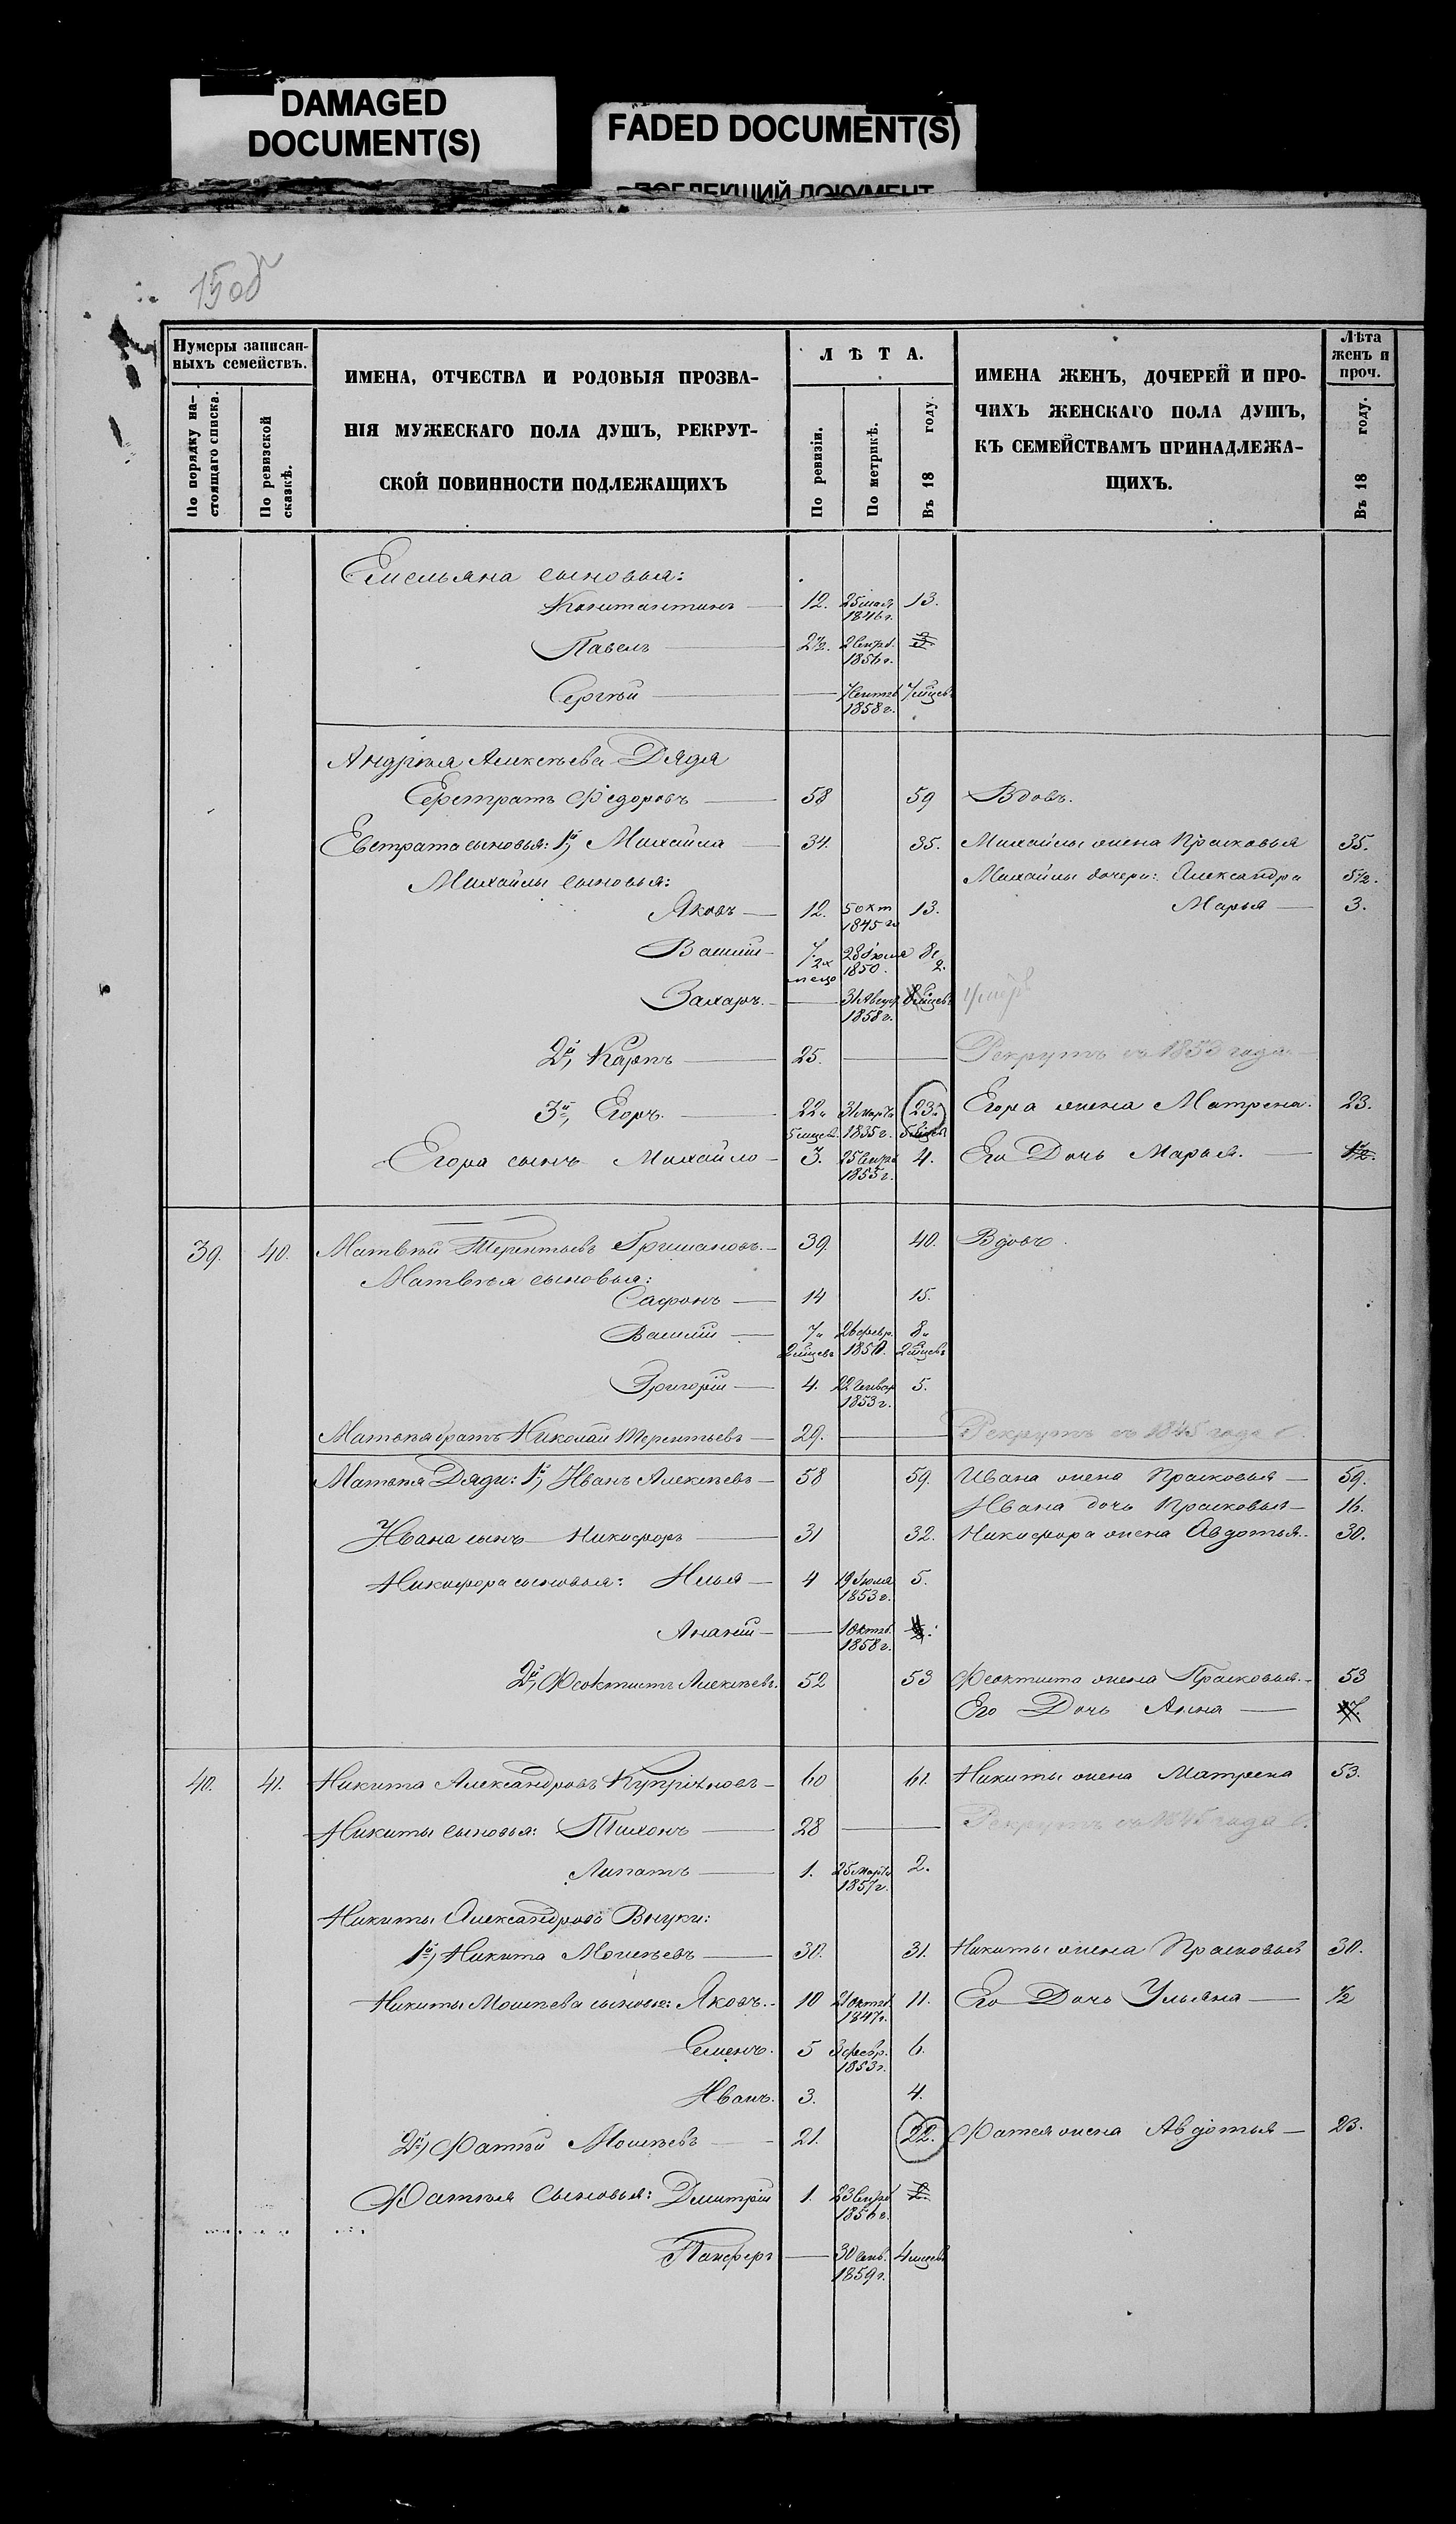 DAMAGED
DOCUMENT(S)
FADED DOCUMENT(S)
15об
Нумеры записан-
ныхъ семействъ.
По порядку на-
стоящаго списка.
По ревизской
сказкѣ.
ИМЕНА, ОТЧЕСТВА И РОДОВЫЯ ПРОЗВА-
НІЯ МУЖЕСКАГО ПОЛА ДУШЪ, РЕКРУТ-
СКОЙ ПОВИННОСТИ ПОДЛЕЖАЩИХЪ
ЛѢТА.
По ревизіи.
По метрикѣ.
Въ 18 году.
ИМЕНА ЖЕНЪ, ДОЧЕРЕЙ И ПРО-
ЧИХЪ ЖЕНСКАГО ПОЛА ДУШЪ,
КЪ СЕМЕЙСТВАМЪ ПРИНАДЛЕЖА-
ЩИХЪ.
Лѣта
женъ и
проч.
Въ 18 году.
Емельяна сыновья:
Константинъ — 12. 25 мая 1846 г. 13.
Павелъ — 2½. 2 Сентяб. 1856 г.
Сергѣй — 7 Сентяб 1858 г. 7 мцевъ
Андрѣя Алексѣева Дядя
Евстратъ Федоровъ — 58 59 Вдовъ.
Евстрата сыновья: 1й, Михайла — 34. 35. Михайлы жена Прасковья 35.
Михайлы сыновья: Михайлы дочери: Александра 5½.
Яковъ — 12. 5 Окт 1845 г. 13. Марья — 3.
Василій — 7. 2х 28 Іюля 1850. 8. 2.
Захаръ. — 31 Авгус 1858 г. 8 мцевъ умеръ
2й, Карпъ — 25. — Рекрутъ съ 1853 года.
3й, Егоръ. — 22. 5 мцев. 31 Марта 1835 г. 23. 5 мцев Егора жена Матрена. 23.
Егора сынъ Михайло — 3. 25 Сентяб 1855 г. 4. Его Дочь Марья. — ½.
39. 40. Матвѣй Терентьевъ Гришановъ. — 39. 40. Вдовъ.
Матвѣя сыновья:
Сафонъ — 14 15.
Василій — 7. 2 мцевъ 26 февр. 1851. 8. 2 мцевъ
Григорій — 4. 22 Генвар 1853 г. 5.
Матвѣя братъ Николай Терентьевъ — 29. — Рекрутъ съ 1845 года
Матвѣя Дяди: 1й, Иванъ Алексѣевъ — 58 59. Ивана жена Прасковья — 59.
Ивана дочь Прасковья — 16.
Ивана сынъ Никифоръ — 31 32. Никифора жена Авдотья. 30.
Никифора сыновья: Илья — 4 19 Іюля 1853 г. 5.
Ананій — 1 Октяб. 1858 г.
2й, Феоктистъ Алексѣевъ. 52 53 Феоктиста жена Прасковья. 53
Его Дочь Анна — 17.
40. 41. Никита Александровъ Купріяновъ — 60 61. Никиты жена Матрена 53.
Никиты сыновья: Тихонъ — 28 — Рекрутъ съ 1845 года
Липатъ — 1. 25 Марта 1857 г. 2.
Никиты Александрова Внуки:
1й, Никита Мосѣевъ — 30. 31. Никиты жена Прасковья 30.
Никиты Мосѣева сыновья: Яковъ. 10 21 Октяб 1847 г. 11. Его Дочь Ульяна — ½
Семенъ. 5 3 февр. 1853 г. 6.
Иванъ. 3. 4.
2й, Фатѣй Мосѣевъ — 21. 22. Фатея жена Авдотья — 23.
Фатѣя Сыновья: Дмитрій 1. 23 Сентяб 1856 г. 2.
Панферъ — 30 Генв. 1859 г. 4 мцевъ